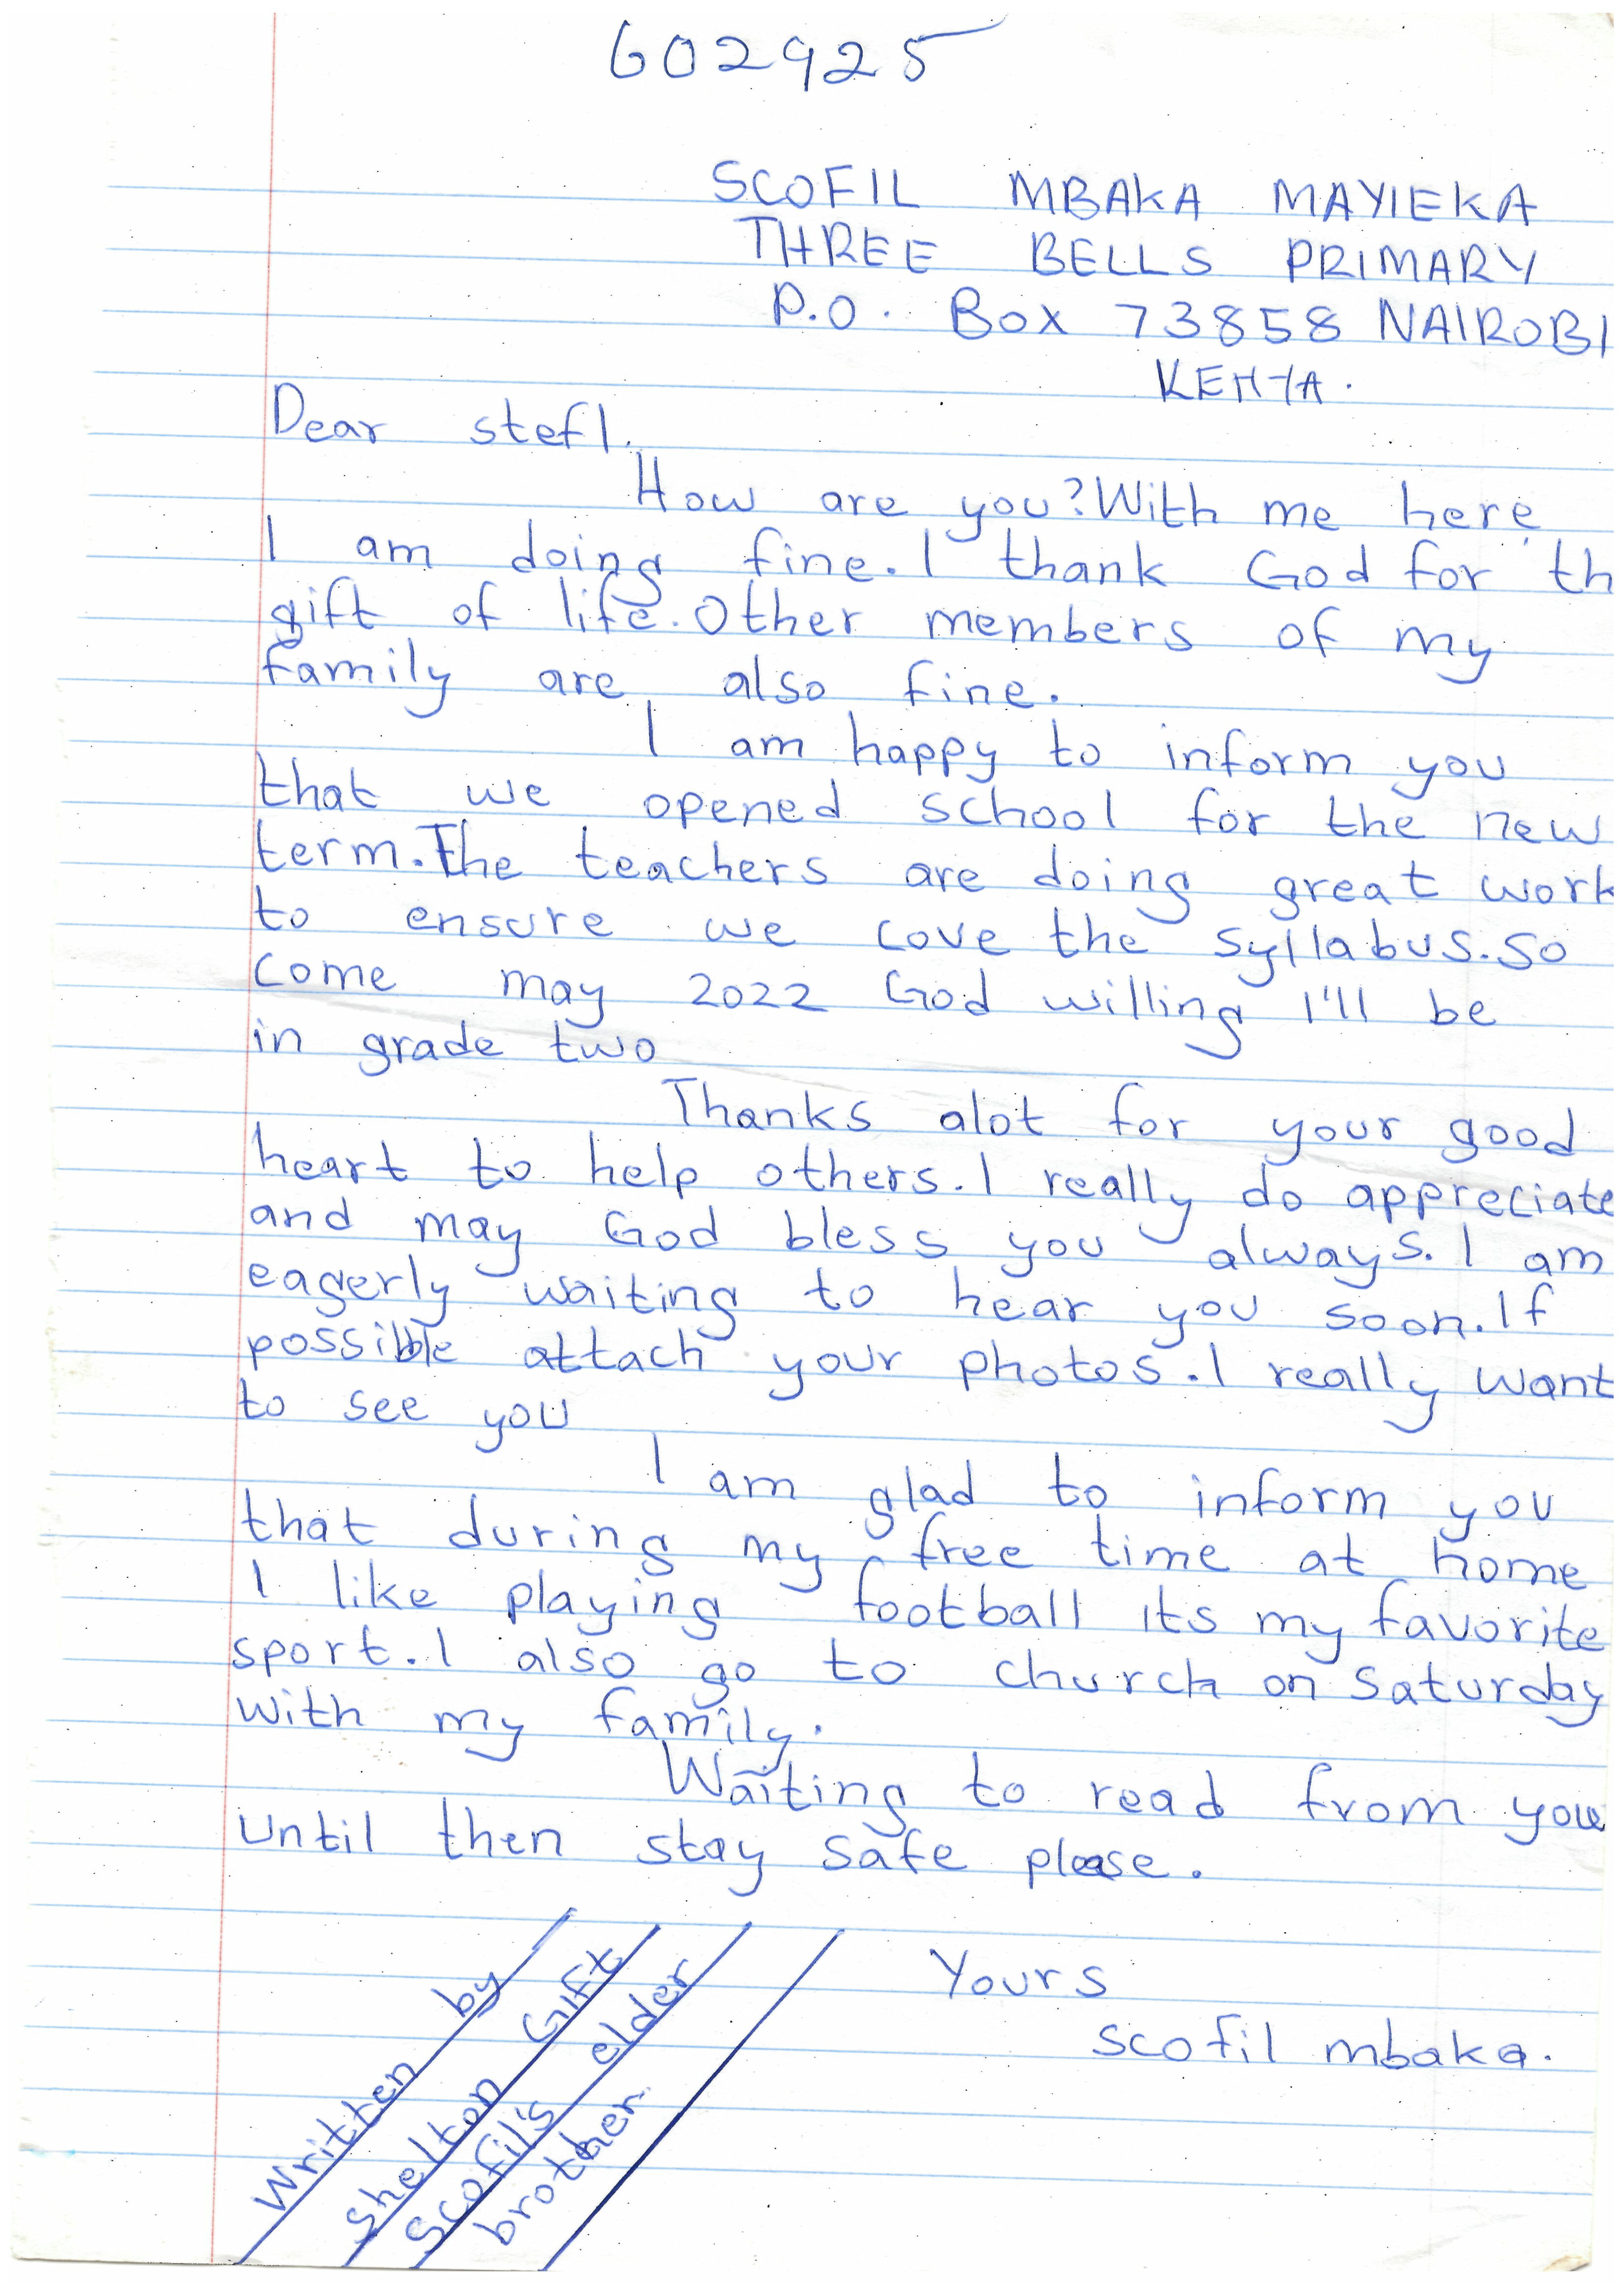 602925
SCOFIL MBAKA MAYIEKA
THREE BELLS PRIMARY
P.O. Box 73858 NAIROBI
KENYA.
Dear stefl.
How are you? With me here
I am doing fine. I thank God for th
gift of life. Other members of my
family are also fine.
I am happy to inform you
that we opened school for the new
term. The teachers are doing great work
to ensure we cove the syllabus. so
come may 2022 God willing I'll be
in grade two
Thanks alot for your good
heart to help others. I really do appreciate
and may God bless you always. I am
eagerly waiting to hear you soon. If
possible attach your photos. I really want
to see you
I am glad to inform you
that during my free time at home
I like playing football its my favorite
sport. I also go to church on saturday
with my family.
Waiting to read from you
until then stay safe please.
Yours
scofil mbaka.
Written by
Shelton Gift
Scofil's elder
brother.